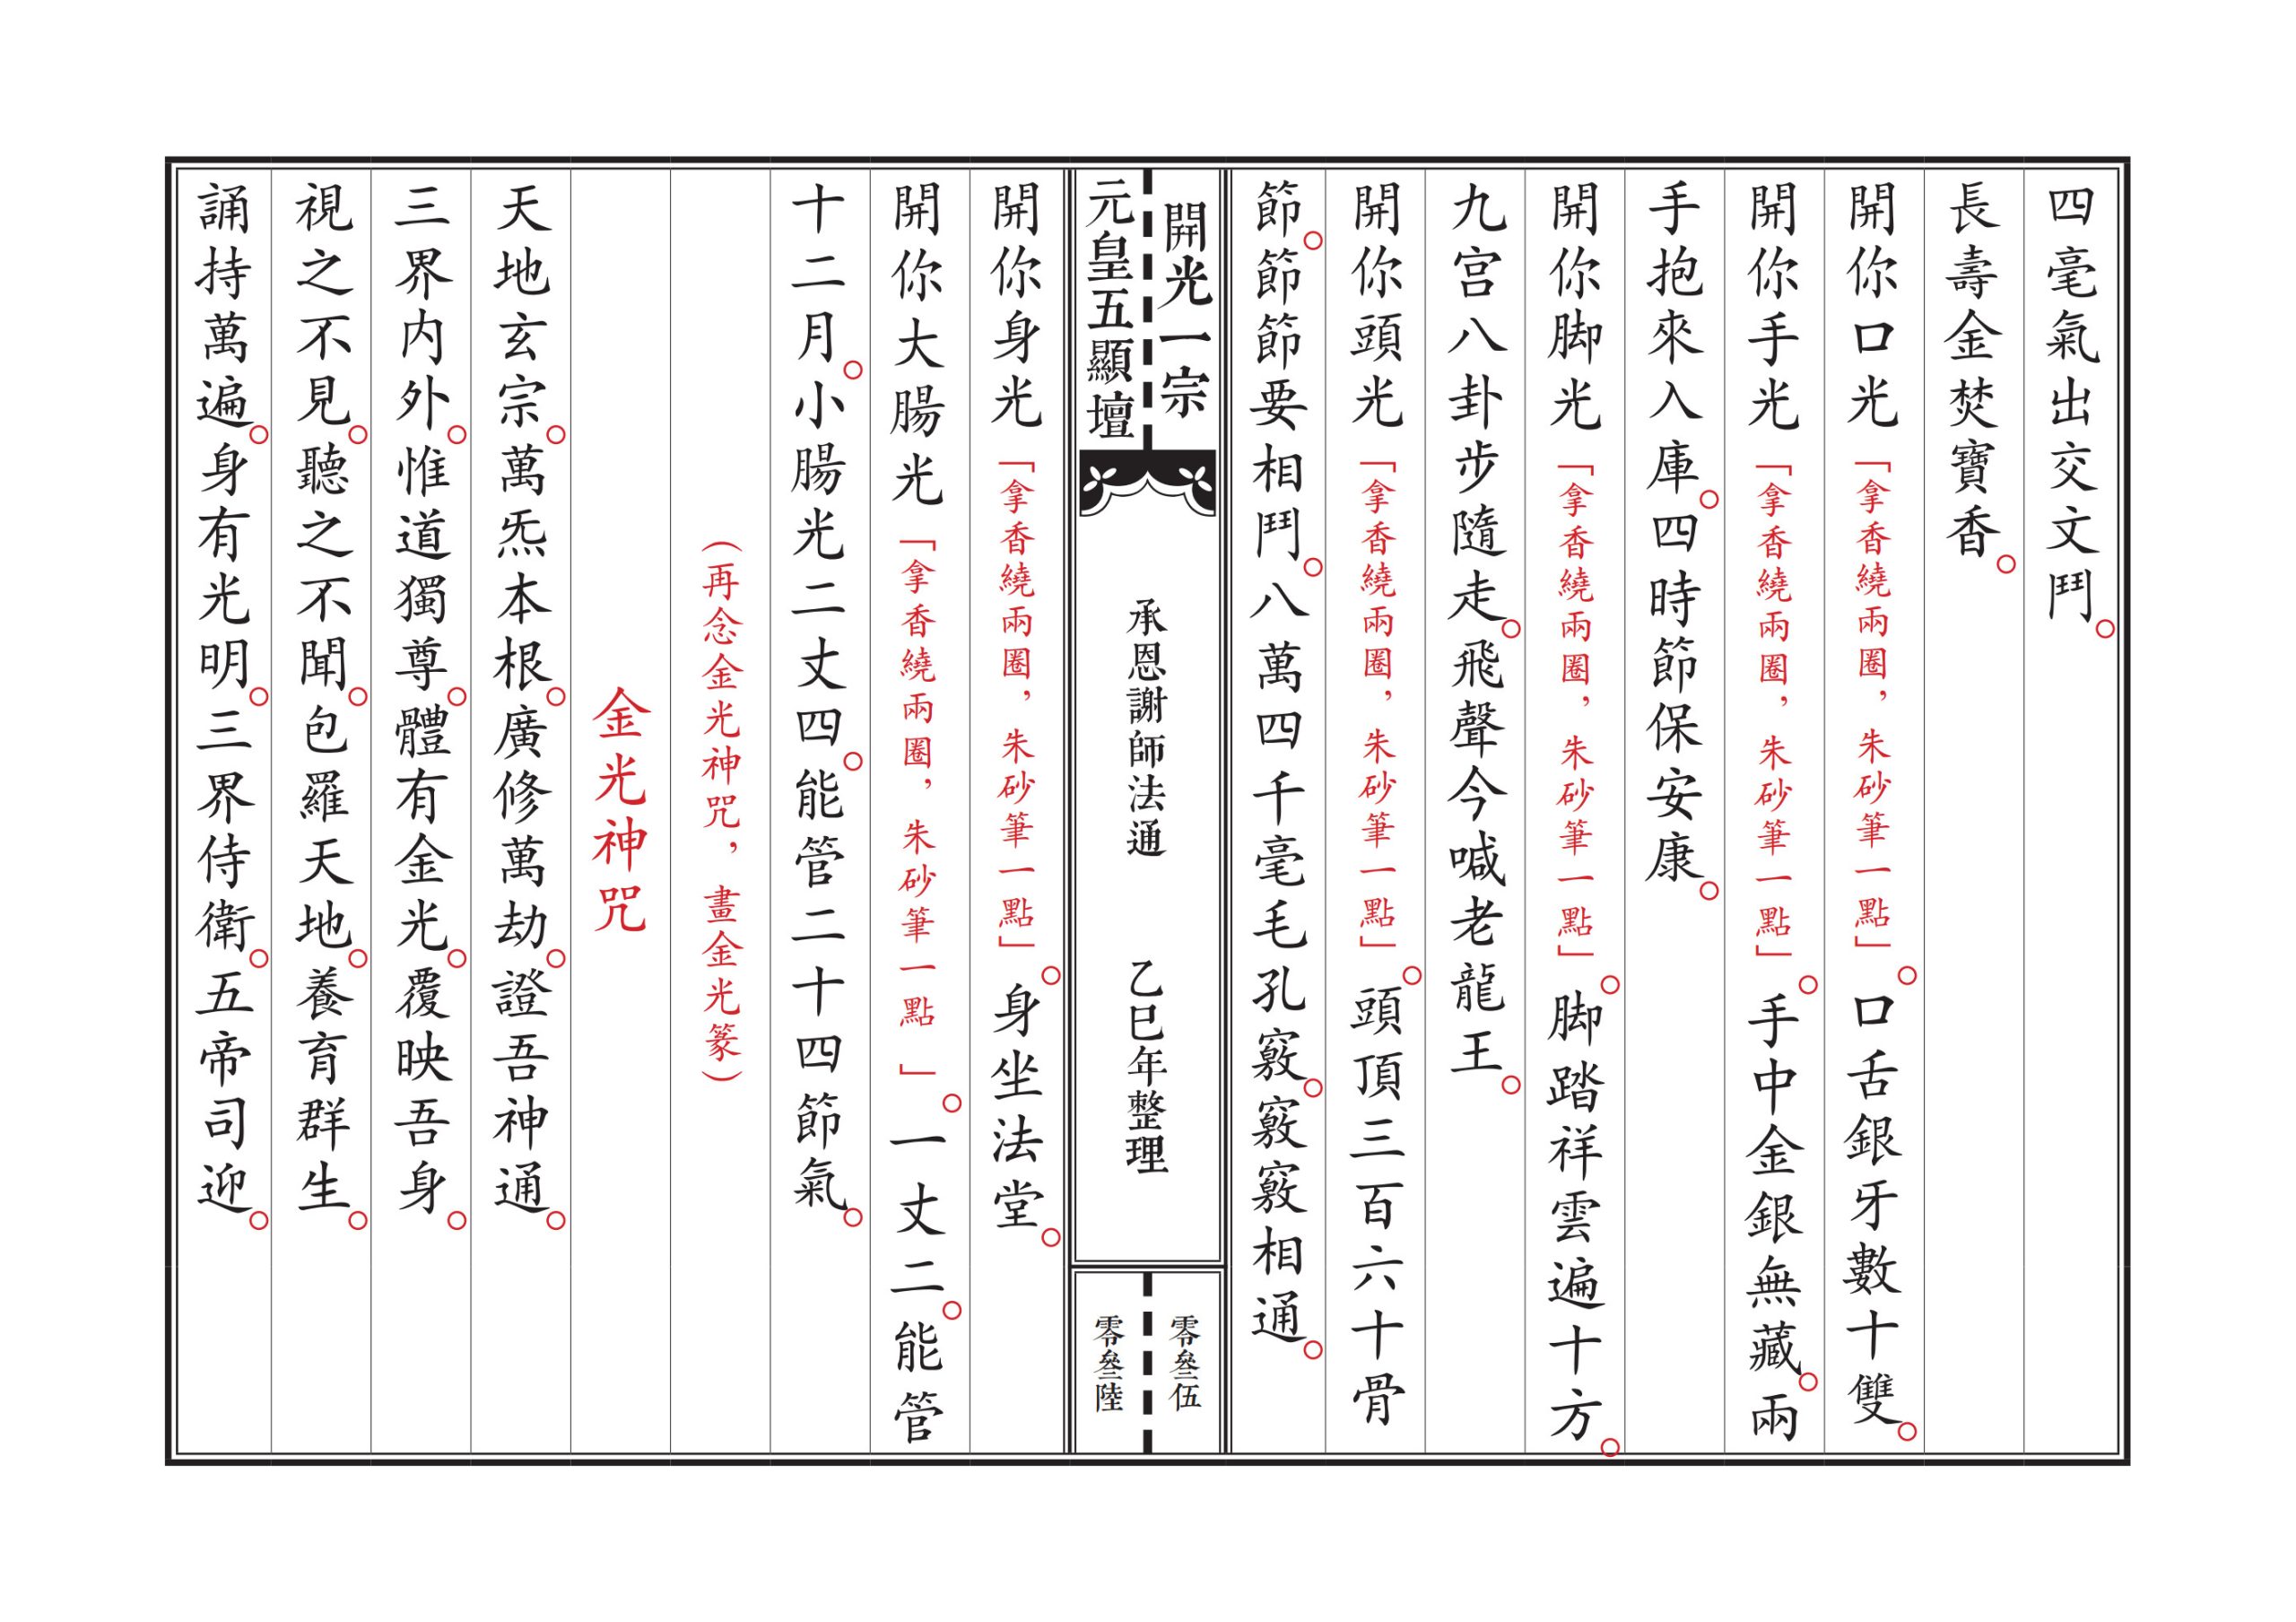 四毫氣出交文鬥。
長壽金焚寶香。
開你口光「拿香繞兩圈，朱砂筆一點」。口舌銀牙數十雙。
開你手光「拿香繞兩圈，朱砂筆一點」。手中金銀無藏。兩
手抱來入庫。四時節保安康。
開你脚光「拿香繞兩圈，朱砂筆一點」。脚踏祥雲遍十方。
九宫八卦步隨走。飛聲今喊老龍王。
開你頭光「拿香繞兩圈，朱砂筆一點」。頭頂三百六十骨
節。節節要相鬥。八萬四千毫毛孔竅。竅竅相通。
開光一宗
元皇五顯壇
承恩謝師法通
乙巳年整理
零叄伍
零叄陸
開你身光「拿香繞兩圈，朱砂筆一點」。身坐法堂。
開你大腸光「拿香繞兩圈，朱砂筆一點」。一丈二。能管
十二月。小腸光二丈四。能管二十四節氣。
（再念金光神咒，畫金光篆）
金光神咒
天地玄宗。萬炁本根。廣修萬劫。證吾神通。
三界内外。惟道獨尊。體有金光。覆映吾身。
視之不見。聽之不聞。包羅天地。養育群生。
誦持萬遍。身有光明。三界侍衛。五帝司迎。